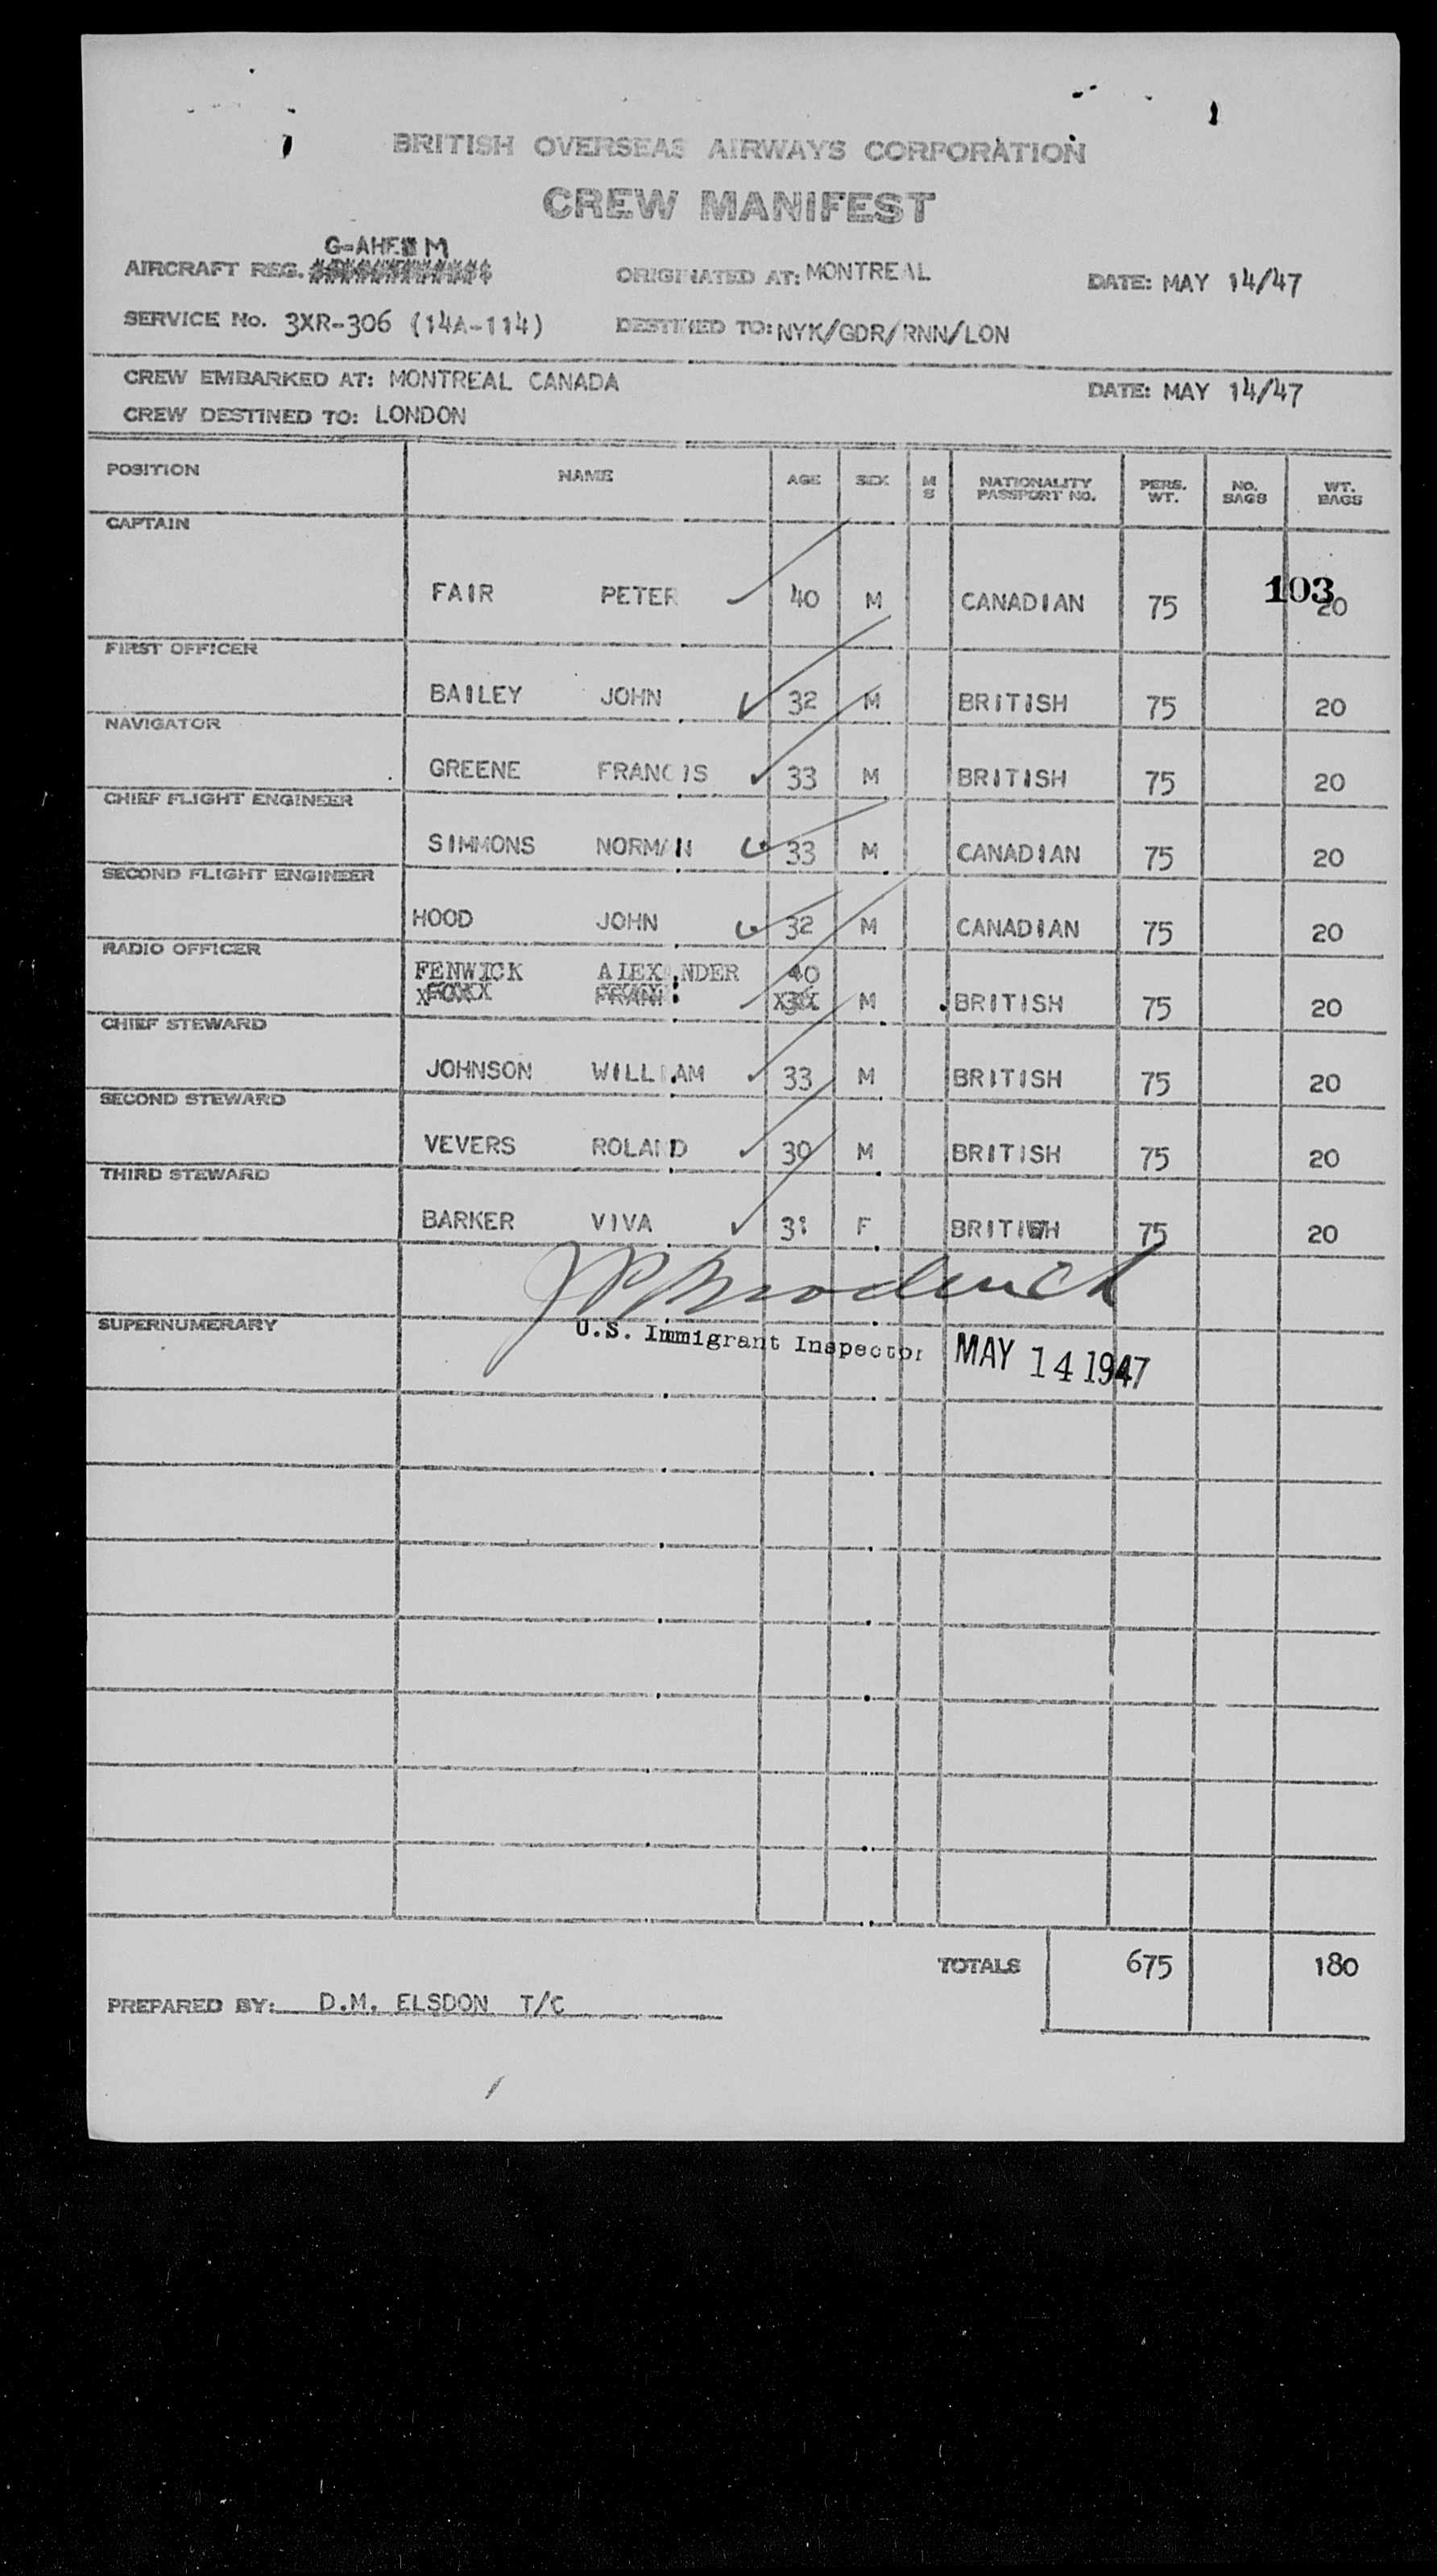 BRITISH OVERSEAS AIRWAYS CORPORATION
CREW MANIFEST
G-AHEM
AIRCRAFT REG. ORIGINATED AT: MONTREAL DATE: MAY 14/47
SERVICE No. 3XR-306 (14A-114) DESTINED TO: NYK/GDR/RNN/LON
CREW EMBARKED AT: MONTREAL CANADA DATE: MAY 14/47
CREW DESTINED TO: LONDON
POSITION NAME AGE SEX M S NATIONALITY PASSPORT NO. PERS. WT. NO. BAGS WT. BAGS
CAPTAIN
FAIR PETER 40 M CANADIAN 75 103 20
FIRST OFFICER
BAILEY JOHN 32 M BRITISH 75 20
NAVIGATOR
GREENE FRANCIS 33 M BRITISH 75 20
CHIEF FLIGHT ENGINEER
SIMMONS NORMAN 33 M CANADIAN 75 20
SECOND FLIGHT ENGINEER
HOOD JOHN 32 M CANADIAN 75 20
RADIO OFFICER
FENWICK ALEXANDER 40
M BRITISH 75 20
CHIEF STEWARD
JOHNSON WILLIAM 33 M BRITISH 75 20
SECOND STEWARD
VEVERS ROLAND 30 M BRITISH 75 20
THIRD STEWARD
BARKER VIVA 31 F BRITISH 75 20
J P Broderick
SUPERNUMERARY
U.S. Immigrant Inspector MAY 14 1947
TOTALS 675 180
PREPARED BY: D.M. ELSDON T/C